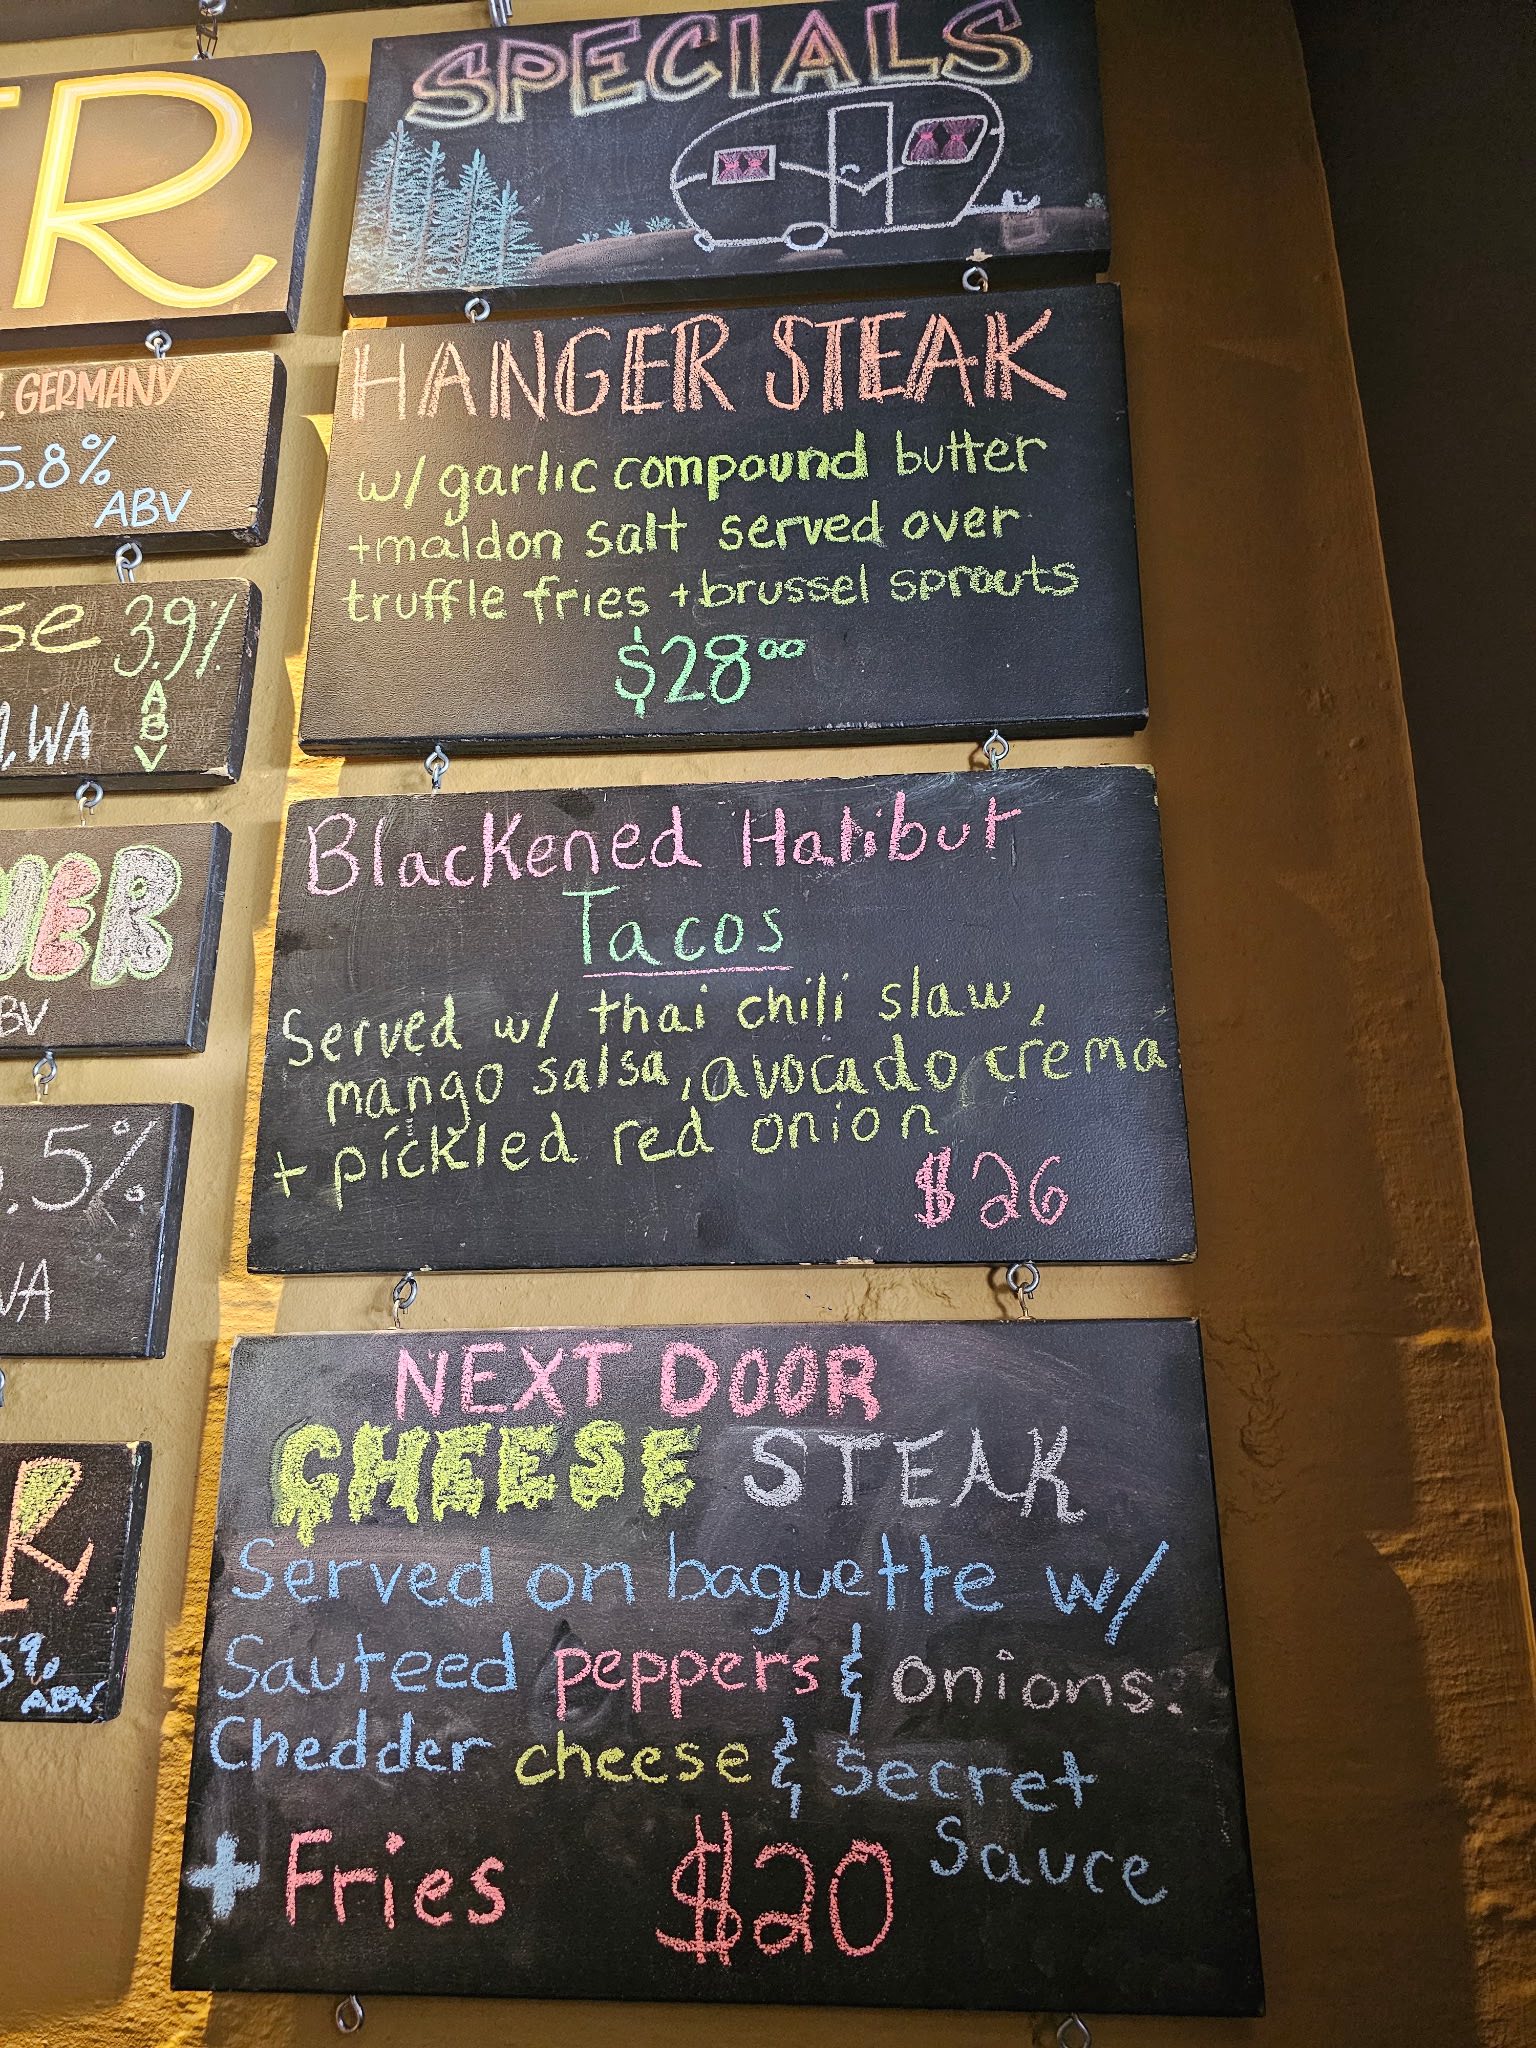 SPECIALS
HANGER STEAK
w/ garlic compound butter
+ maldon salt served over
truffle fries + brussel sprouts
$28⁰⁰
Blackened Halibut
Tacos
Served w/ thai chili slaw,
mango salsa, avocado crema
+ pickled red onion
$26
NEXT DOOR
CHEESE STEAK
Served on baguette w/
Sauteed peppers & onions.
Chedder cheese & secret
Sauce
+ Fries $20
R
, GERMANY
5.8%
ABV
se 3.9%
, WA ABV
ER
BV
.5%
WA
R
5%
ABV